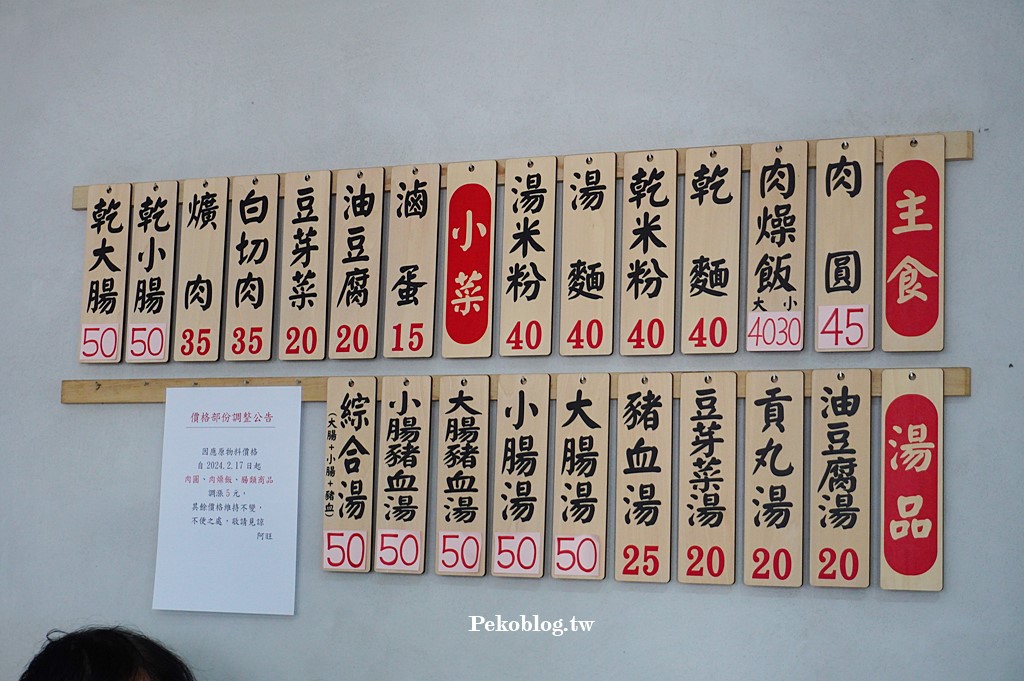 主食
肉圓 45
肉燥飯 大40 小30
乾麵 40
乾米粉 40
湯麵 40
湯米粉 40
小菜
滷蛋 15
油豆腐 20
豆芽菜 20
白切肉 35
爌肉 35
乾小腸 50
乾大腸 50
湯品
油豆腐湯 20
貢丸湯 20
豆芽菜湯 20
豬血湯 25
大腸湯 50
小腸湯 50
大腸豬血湯 50
小腸豬血湯 50
綜合湯 (大腸+小腸+豬血) 50
價格部份調整公告
因應原物料價格
自 2024.2.17 日起
肉圓、肉燥飯、腸類商品
調漲 5 元，
其餘價格維持不變，
不便之處，敬請見諒
阿旺
Pekoblog.tw